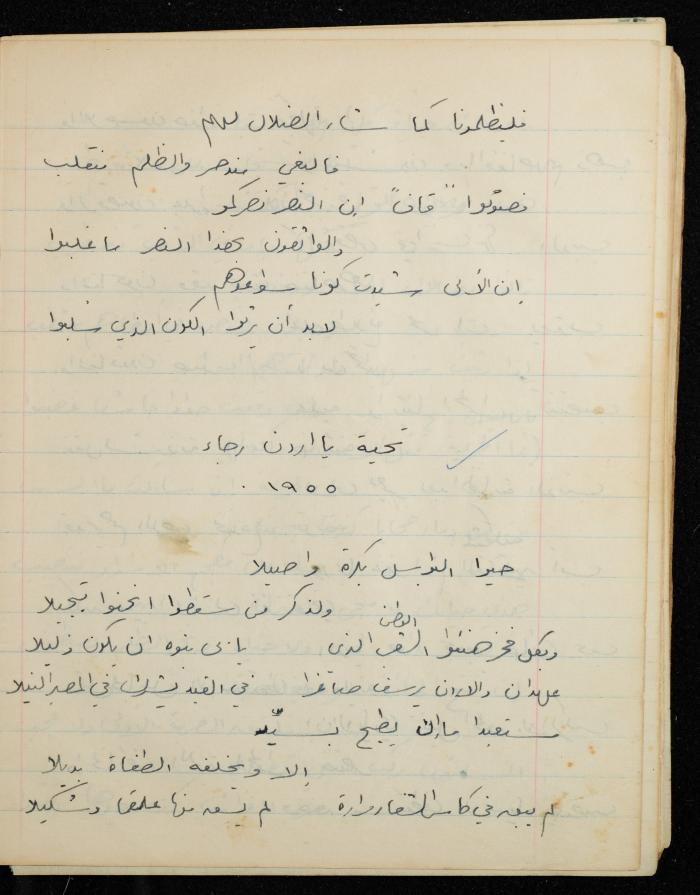 فليظلمونا كما شاء الضلال لهم
فالبغي مندحر والظلم منقلب
فصوتوا "قاف" ان النصر نصركمو
والواثقون بهذا النصر ما غلبوا
ان الألى شيدت كونا سواعدهم
لابد أن يرثوا الكون الذي سلبوا
تحية يا اردن رجاء
١٩٥٥
حيوا البواسل بكرة واصيلا
ولذكر من سقطوا انحنوا تبجيلا
الوطن
وبكل فخر هنئوا الشعب الذي يأبى بنوه ان يكون ذليلا
عهدان والاردن يرسف صاغرا في القيد يشرك في المصير النيلا
مستعبدا ما إن يطيح بسيّد
إلا ويخلفه الطغاة بديلا
لم يبق في كأس مرارة لم يسقه منها علقما